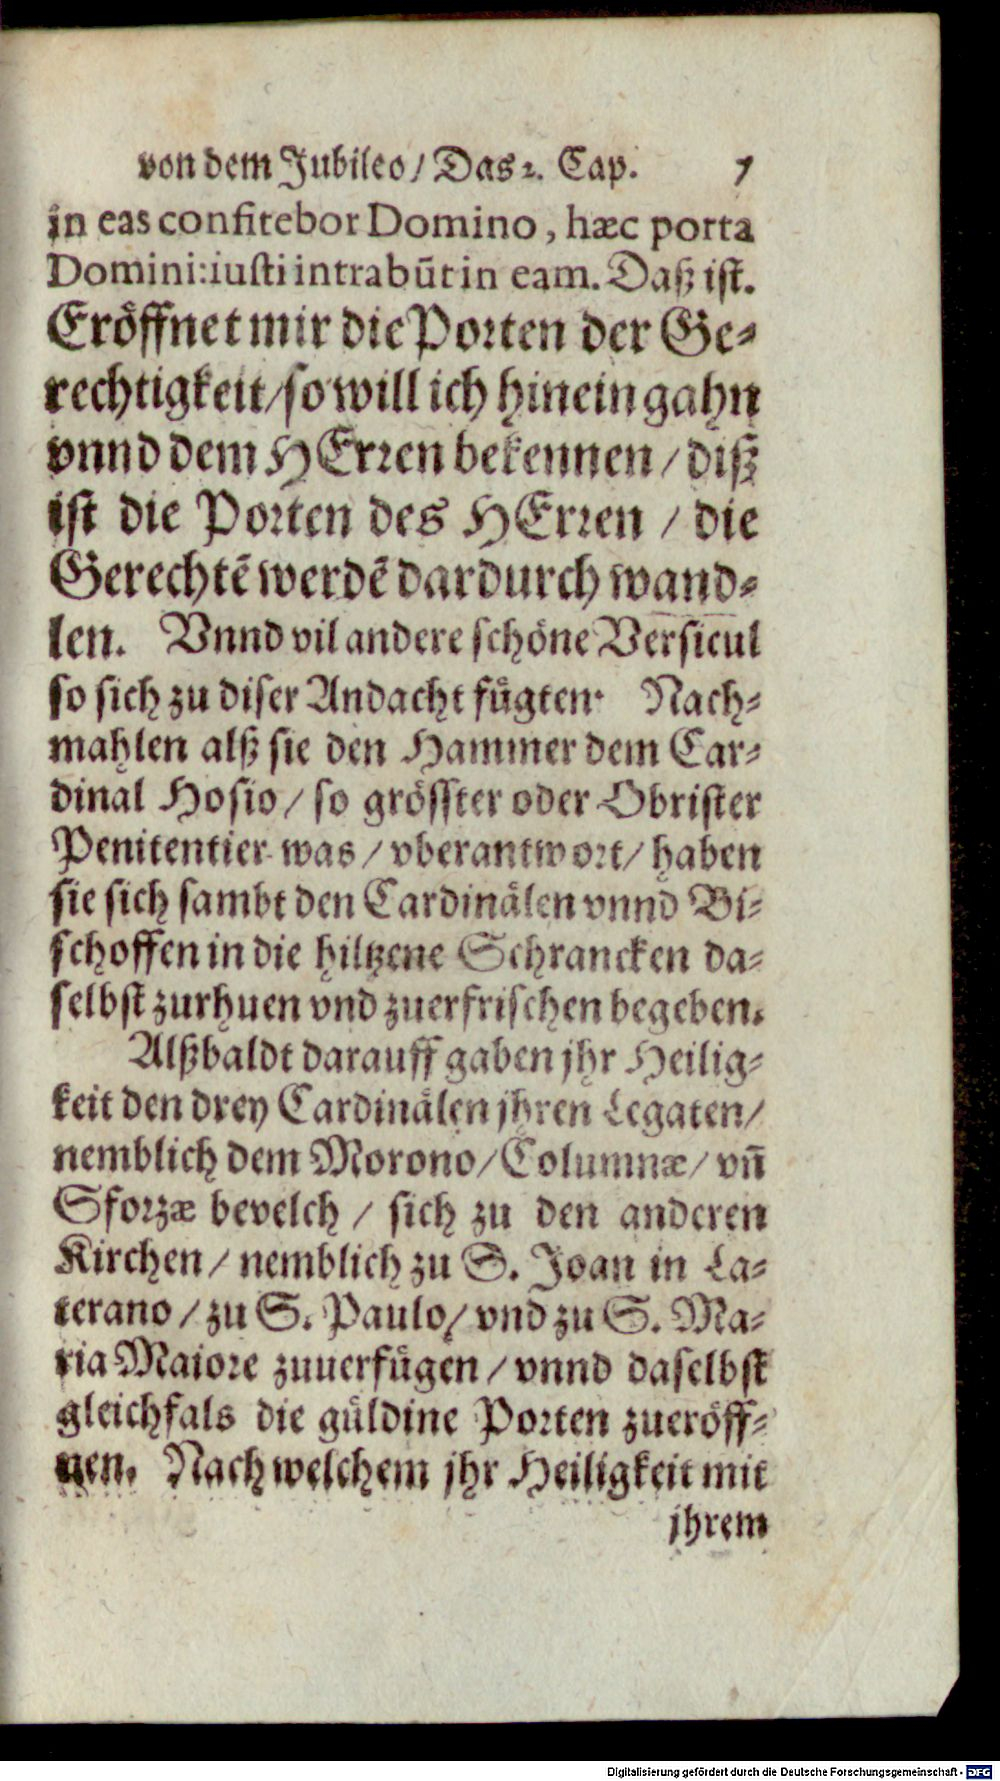 von dem Jubileo / Das 2. Cap. 7
in eas confitebor Domino, hæc porta
Domini: iusti intrabūt in eam. Daß ist.
Eröffnet mir die Porten der Ge-
rechtigkeit / so will ich hinein gahn
vnnd dem HErren bekennen / diß
ist die Porten des HErren / die
Gerechtē werdē dardurch wand-
len. Vnnd vil andere schöne Versicul
so sich zu diser Andacht fügten. Nach-
mahlen alß sie den Hammer dem Car-
dinal Hosio / so grösster oder Obrister
Penitentier was / vberantwort / haben
sie sich sambt den Cardinälen vnnd Bi-
schoffen in die hiltzene Schrancken da-
selbst zurhuen vnd zuerfrischen begeben.
Alßbaldt darauff gaben jhr Heilig-
keit den drey Cardinälen jhren Legaten /
nemblich dem Morono / Columnæ / vñ
Sforzæ bevelch / sich zu den anderen
Kirchen / nemblich zu S. Joan in La-
terano / zu S. Paulo / vnd zu S. Ma-
ria Maiore zuuerfügen / vnnd daselbst
gleichfals die güldine Porten zueröff-
nen. Nach welchem jhr Heiligkeit mit
jhrem
Digitalisierung gefördert durch die Deutsche Forschungsgemeinschaft - DFG